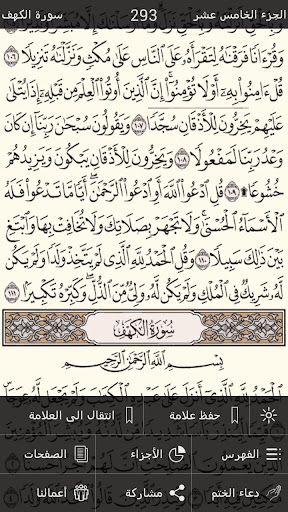 الجزء الخامس عشر 293 سورة الكهف
وَقُرْءَانًا فَرَقْنَٰهُ لِتَقْرَأَهُۥ عَلَى ٱلنَّاسِ عَلَىٰ مُكْثٍ وَنَزَّلْنَٰهُ تَنزِيلًا ١٠٦
قُلْ ءَامِنُوا۟ بِهِۦٓ أَوْ لَا تُؤْمِنُوٓا۟ إِنَّ ٱلَّذِينَ أُوتُوا۟ ٱلْعِلْمَ مِن قَبْلِهِۦٓ إِذَا يُتْلَىٰ
عَلَيْهِمْ يَخِرُّونَ لِلْأَذْقَانِ سُجَّدًا ١٠٧ وَيَقُولُونَ سُبْحَٰنَ رَبِّنَآ إِن كَانَ
وَعْدُ رَبِّنَا لَمَفْعُولًا ١٠٨ وَيَخِرُّونَ لِلْأَذْقَانِ يَبْكُونَ وَيَزِيدُهُمْ
خُشُوعًا ۩ ١٠٩ قُلِ ٱدْعُوا۟ ٱللَّهَ أَوِ ٱدْعُوا۟ ٱلرَّحْمَٰنَ أَيًّا مَّا تَدْعُوا۟ فَلَهُ
ٱلْأَسْمَآءُ ٱلْحُسْنَىٰ وَلَا تَجْهَرْ بِصَلَاتِكَ وَلَا تُخَافِتْ بِهَا وَٱبْتَغِ
بَيْنَ ذَٰلِكَ سَبِيلًا ١١٠ وَقُلِ ٱلْحَمْدُ لِلَّهِ ٱلَّذِى لَمْ يَتَّخِذْ وَلَدًا وَلَمْ يَكُن
لَّهُۥ شَرِيكٌ فِى ٱلْمُلْكِ وَلَمْ يَكُن لَّهُۥ وَلِىٌّ مِّنَ ٱلذُّلِّ وَكَبِّرْهُ تَكْبِيرًۢا ١١١
سُورَةُ الكَهْفِ
بِسْمِ ٱللَّهِ ٱلرَّحْمَٰنِ ٱلرَّحِيمِ
ٱلْحَمْدُ لِلَّهِ ٱلَّذِىٓ أَنزَلَ عَلَىٰ عَبْدِهِ ٱلْكِتَٰبَ وَلَمْ يَجْعَل لَّهُۥ
حفظ علامة انتقال الى العلامة
الفهرس الأجزاء الصفحات
دعاء الختم مشاركة أعمالنا